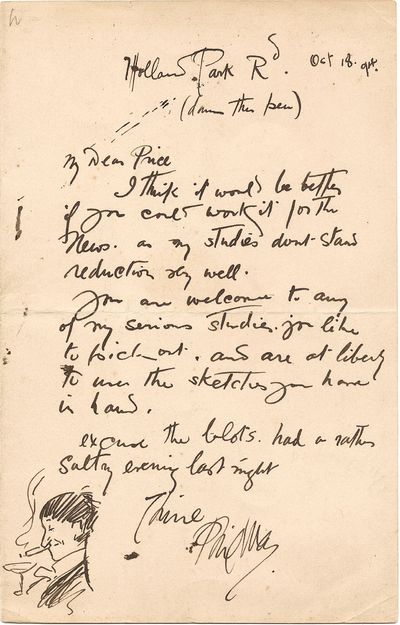 Holland Park Rd. Oct 18. 94.
(damn this pen)
My Dear Price
I think it would be better
if you could work it for the
News. as my studies dont stand
reduction very well.
you are welcome to any
of my serious studies. you like
to pick out. and are at liberty
to use the sketches you have
in hand.
excuse the blots. had a rather
Saltry evening last night
Thine
Phil May